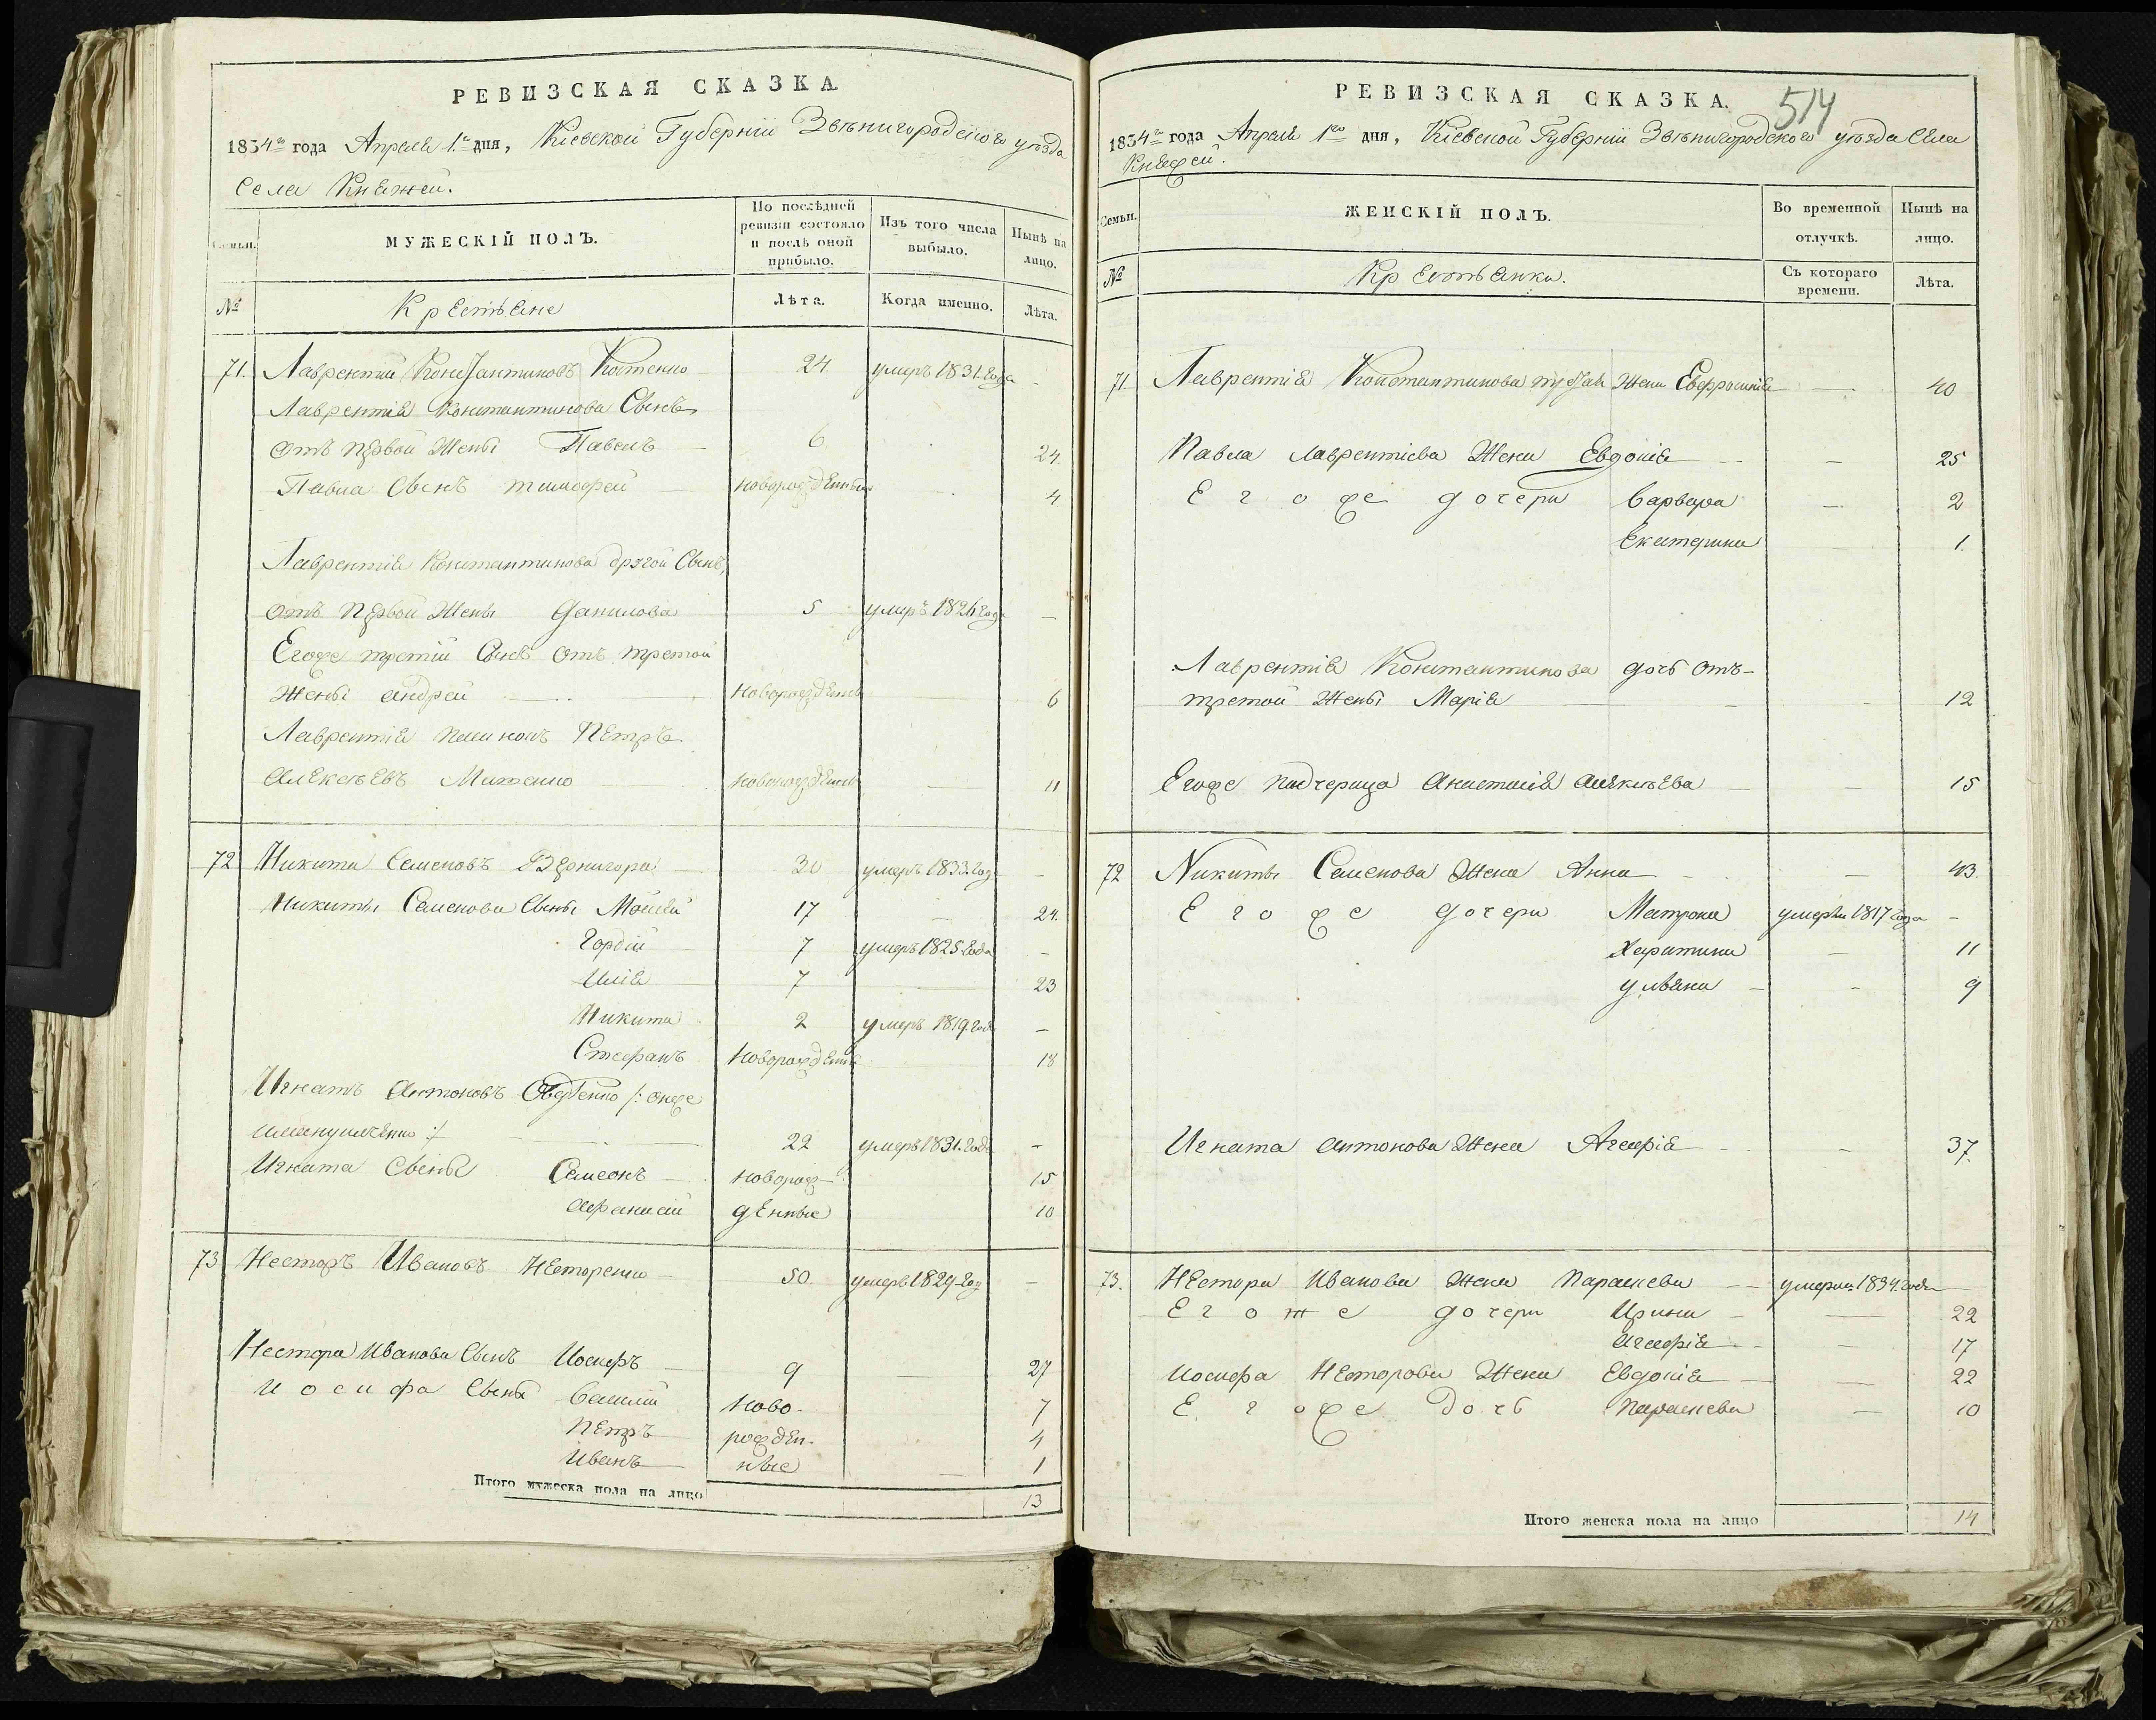 РЕВИЗСКАЯ СКАЗКА
1834го года Апреля 1го дня, Кіевской Губерніи Звѣнигородского уѣзда
Села Княжей.
Семьи.
МУЖЕСКІЙ ПОЛЪ.
По послѣдней ревизіи состояло и послѣ оной прибыло.
Изъ того числа выбыло.
Нынѣ на лицо.
№
Крестьяне
Лѣта.
Когда именно.
Лѣта.
71. Лаврентій Константиновъ Костенко 24 умеръ 1831. года -
Лаврентія Константинова Сынъ
отъ первой Жены Павелъ 6 24
Павла Сынъ тимофей новорожденный 4
Лаврентія Константинова другой Сынъ,
отъ первой Жены Данилова 5 умеръ 1826 года —
Егоже третій Сынъ отъ третой
Жены андрей новорожденъ 6
Лаврентія Петръ
Алексѣевъ новорожденъ — 11
72 Никита Семеновъ Вернигора 30 умеръ 1833. год —
Никиты Семенова Сыны Моисей 17 — 24.
Гордій 7 умеръ 1825 года -
Илія 7 23
Никита 2 умеръ 1819. года —
Стефанъ новорожденъ 18
Игнатъ Антоновъ /: онже
:/ 22 умеръ 1831. года -
Игната Сыны Симеонъ новорож- 15
Афанасій денные 10
73 Несторъ Ивановъ Нестеренко 50. умеръ 1829. год —
Нестора Иванова Сынъ Іосифъ 9 — 27
Иосифа Сыны Василій ново- 7
Петръ рожден- 4
Иванъ ные — 1
Итого мужеска пола на лицо 13
РЕВИЗСКАЯ СКАЗКА.
514
1834го года Апреля 1го дня, Кіевской Губерніи Звѣнигородского уѣзда Села
Княжей.
Семьи.
ЖЕНСКІЙ ПОЛЪ.
Во временной отлучкѣ.
Нынѣ на лицо.
№
Крестьянки.
Съ котораго времени.
Лѣта.
71 Лаврентія Константинова третья Жена Евфросинія — 40
Павла Лаврентіева Жена Евдокія — 25
Егоже дочери Варвара — 2
Екатерина 1.
Лаврентія Константинова дочь отъ-
третой Жены Марія 12
Егоже падчерица Анастасія Алексѣева — 15
72 Никиты Семенова Жена Анна — 43.
Егоже дочери Матрона умерла 1817 года -
Харитина — 11
ульяна - 9
Игната антонова Жена Агафія - 37.
73. Нестора Иванова Жена Параскева умерла 1834. года
Егоже дочери Ирина — 22
Агафія — 17
Иосифа Несторова Жена Евдокія — 22
Егоже дочь Параскева — 10
Итого женска пола на лицо 14